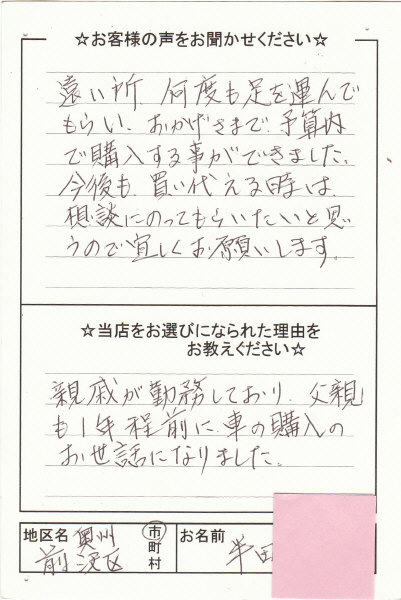 ☆お客様の声をお聞かせください☆
遠い所 何度も足を運んで
もらい、おかげさまで、予算内
で購入する事ができました。
今後も、買い代える時は、
相談にのってもらいたいと思
うので宜しくお願いします。
☆当店をお選びになられた理由を
お教えください☆
親戚が勤務しており、父親
も1年程前に、車の購入の
お世話になりました。
地区名 奥州 市 町 村
前沢区
お名前 半田